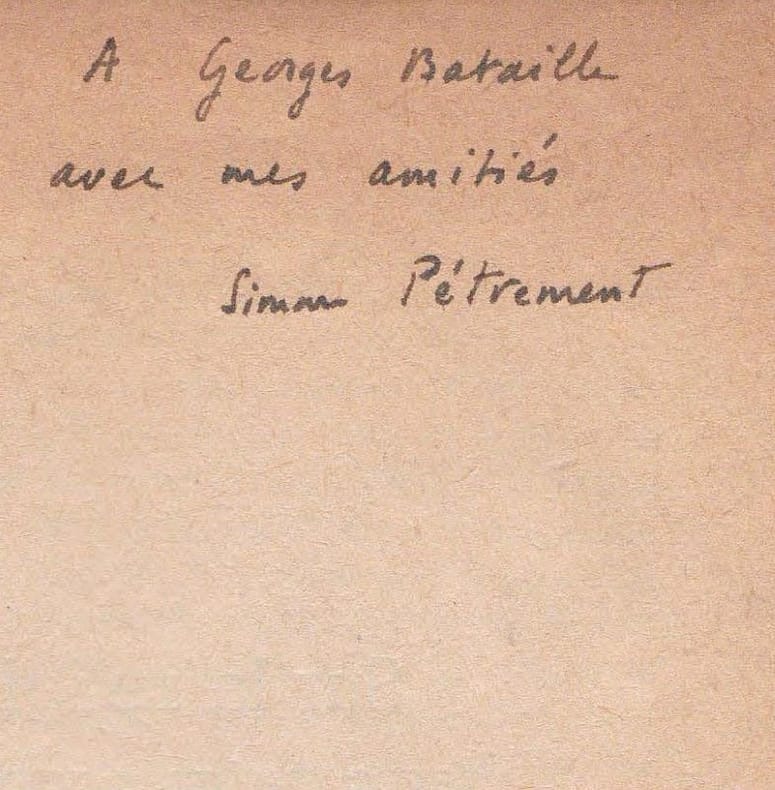 A Georges Bataille
avec mes amitiés
Simone Pétrement